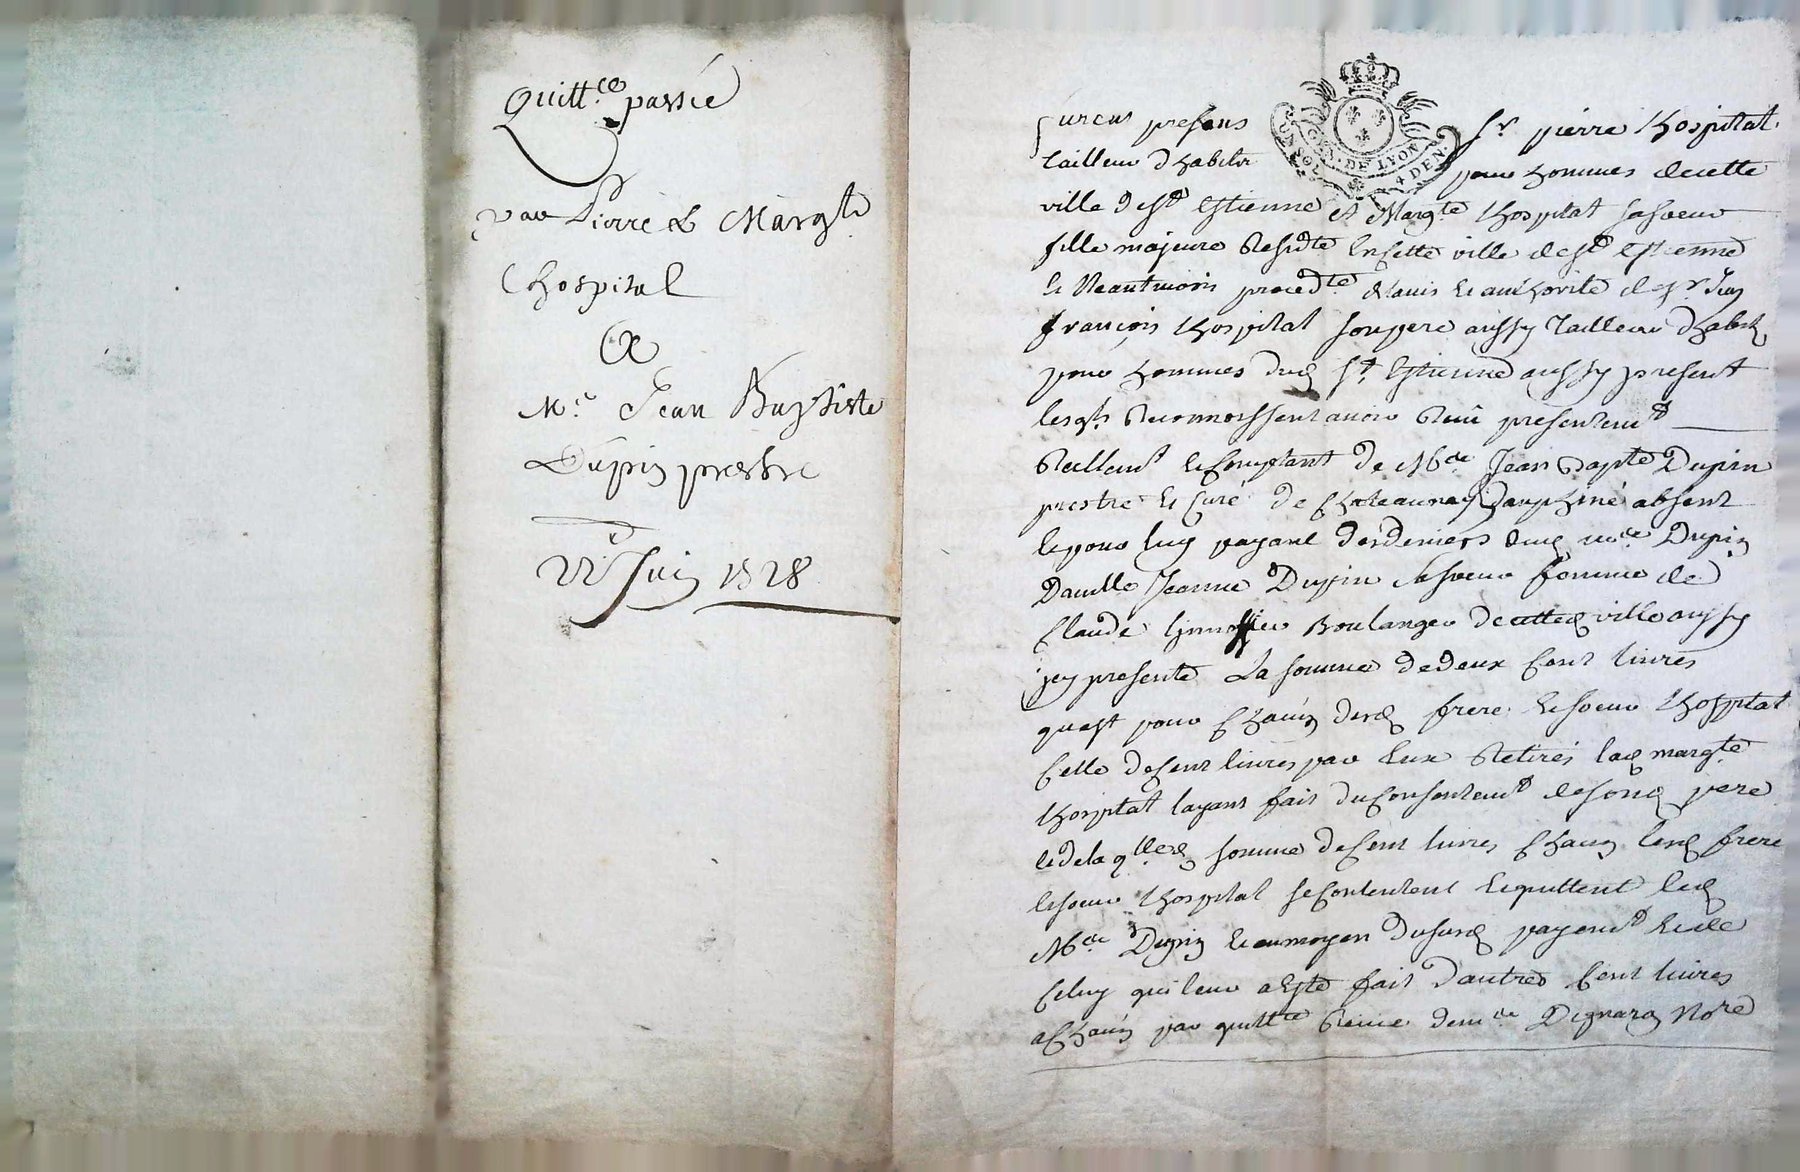 Quitt.ce passée
par Pierre & Marg.te
hospital
A
M.e Jean Baptiste
Dupin prestre
22e Juin 1728
GEN. DE LYON
UN SOL 4 DEN.
furent presens Sr pierre hospital
tailleur dhabits pour hommes de cette
ville de st Estienne et Margte hospital sa soeur
fille majeure Residte En cette ville de st Estienne
Et Neantmoins procedte de lavis Et authorité de sr Jean
françois hospital son pere aussy Tailleur dhabits
pour hommes dud st Estienne aussy present
lesqls Reconnoissent avoir Reçu presentemt
Reellemt Et Comptant de Mre Jean Bapte Dupin
prestre Et Curé de Chateauneuf Dauphiné absent
Et pour luy payant des deniers dud Mre Dupin
Damlle Jeanne Dupin sa soeur femme de
Claude Boulanger de cetted ville aussy
icy presente La somme de deux Cent livres
quest pour Chacun desd frere Et soeur hospital
Celle de Cent livres par Eux Retirés lad margte
hospital layant fait du Consentemt de sond pere
Et de la qlle somme de Cent livres Chacun lesd frere
Et soeur hospital se Contentent Et quittent led
Mre Dupin Et au moyen du susd payemt Et de
Celuy qui leur a Esté fait dautres Cent livres
a Chacun par quittce Reçue de Mre Nore